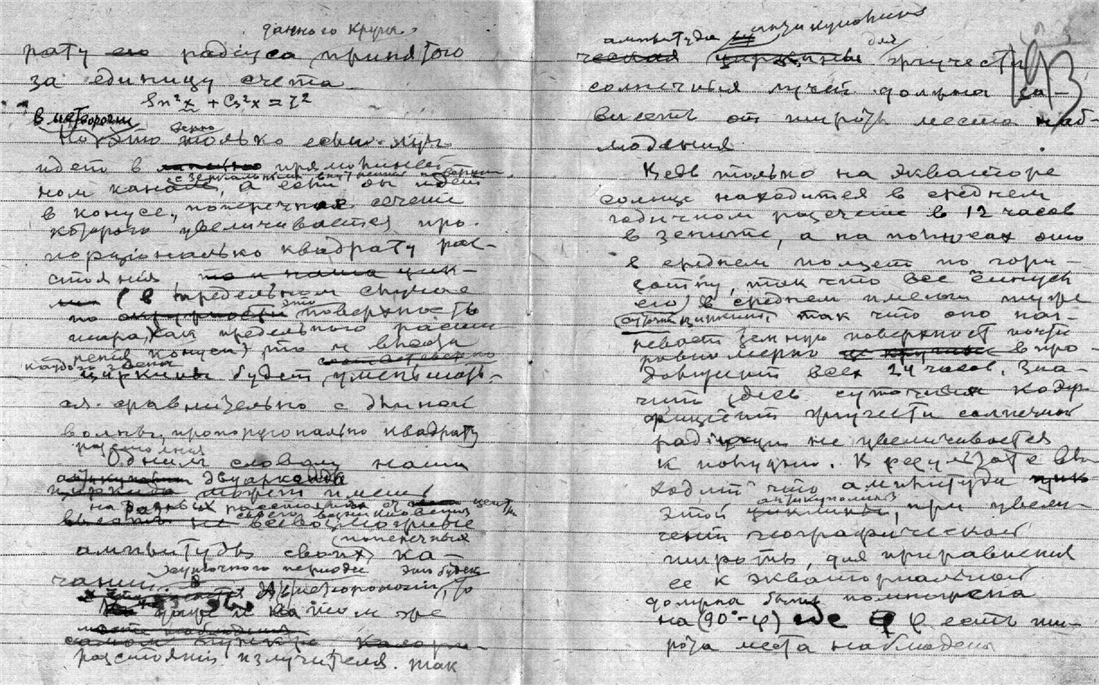 данного круга
рату его радиуса принятого
за единицу счета
Sin²x + Cs²x = 1²
в метеорологии
Но это верно только если луч
идет в прямолиней
ном канале, с зеркальными внутренне поверхн.
а если он идет
в конусе, поперечное сечение
которого увеличивается про-
порционально квадрату рас-
стояния
(в предельном случае
по это поверхность
шара, как предельного расши
рения конуса) то и высота
каждого звена
циркиы будет уменьшать-
ся сравнительно с длиной
волны, пропорционально квадрату
расстояния
Одним словом наша
может иметь
на разных расстояниях от центра
своего возникновения
всевозможные
(поперечных
амплитуды своих) ка-
чаний.
суточного периода это будет
в метеорологии, то
расстоянии излучателя. так
амплитуда
для жгучести
солнечных лучей должна за-
висеть от широты места наб-
людения.
Ведь только на экваторе
солнце находится в среднем
годичном расчете в 12 часов
в зените, а на полюсах оно
в среднем ползет по гори-
зонту, так что все синусы
его в среднем имеют нуле
так что оно наг-
ревает земную поверхность почти
равномерно в про-
должении всех 24 часов. Зна-
чит здесь суточный коэф-
фициент жгучести солнечной
радиации не увеличивается
к полудню. В результате вы
ходит что амплитуда
этой при увели-
чении географической
широты, для приравнения
ее к экваториальной
должна быть помножена
на (90°-φ) где φ есть ши-
рота места наблюдения
193